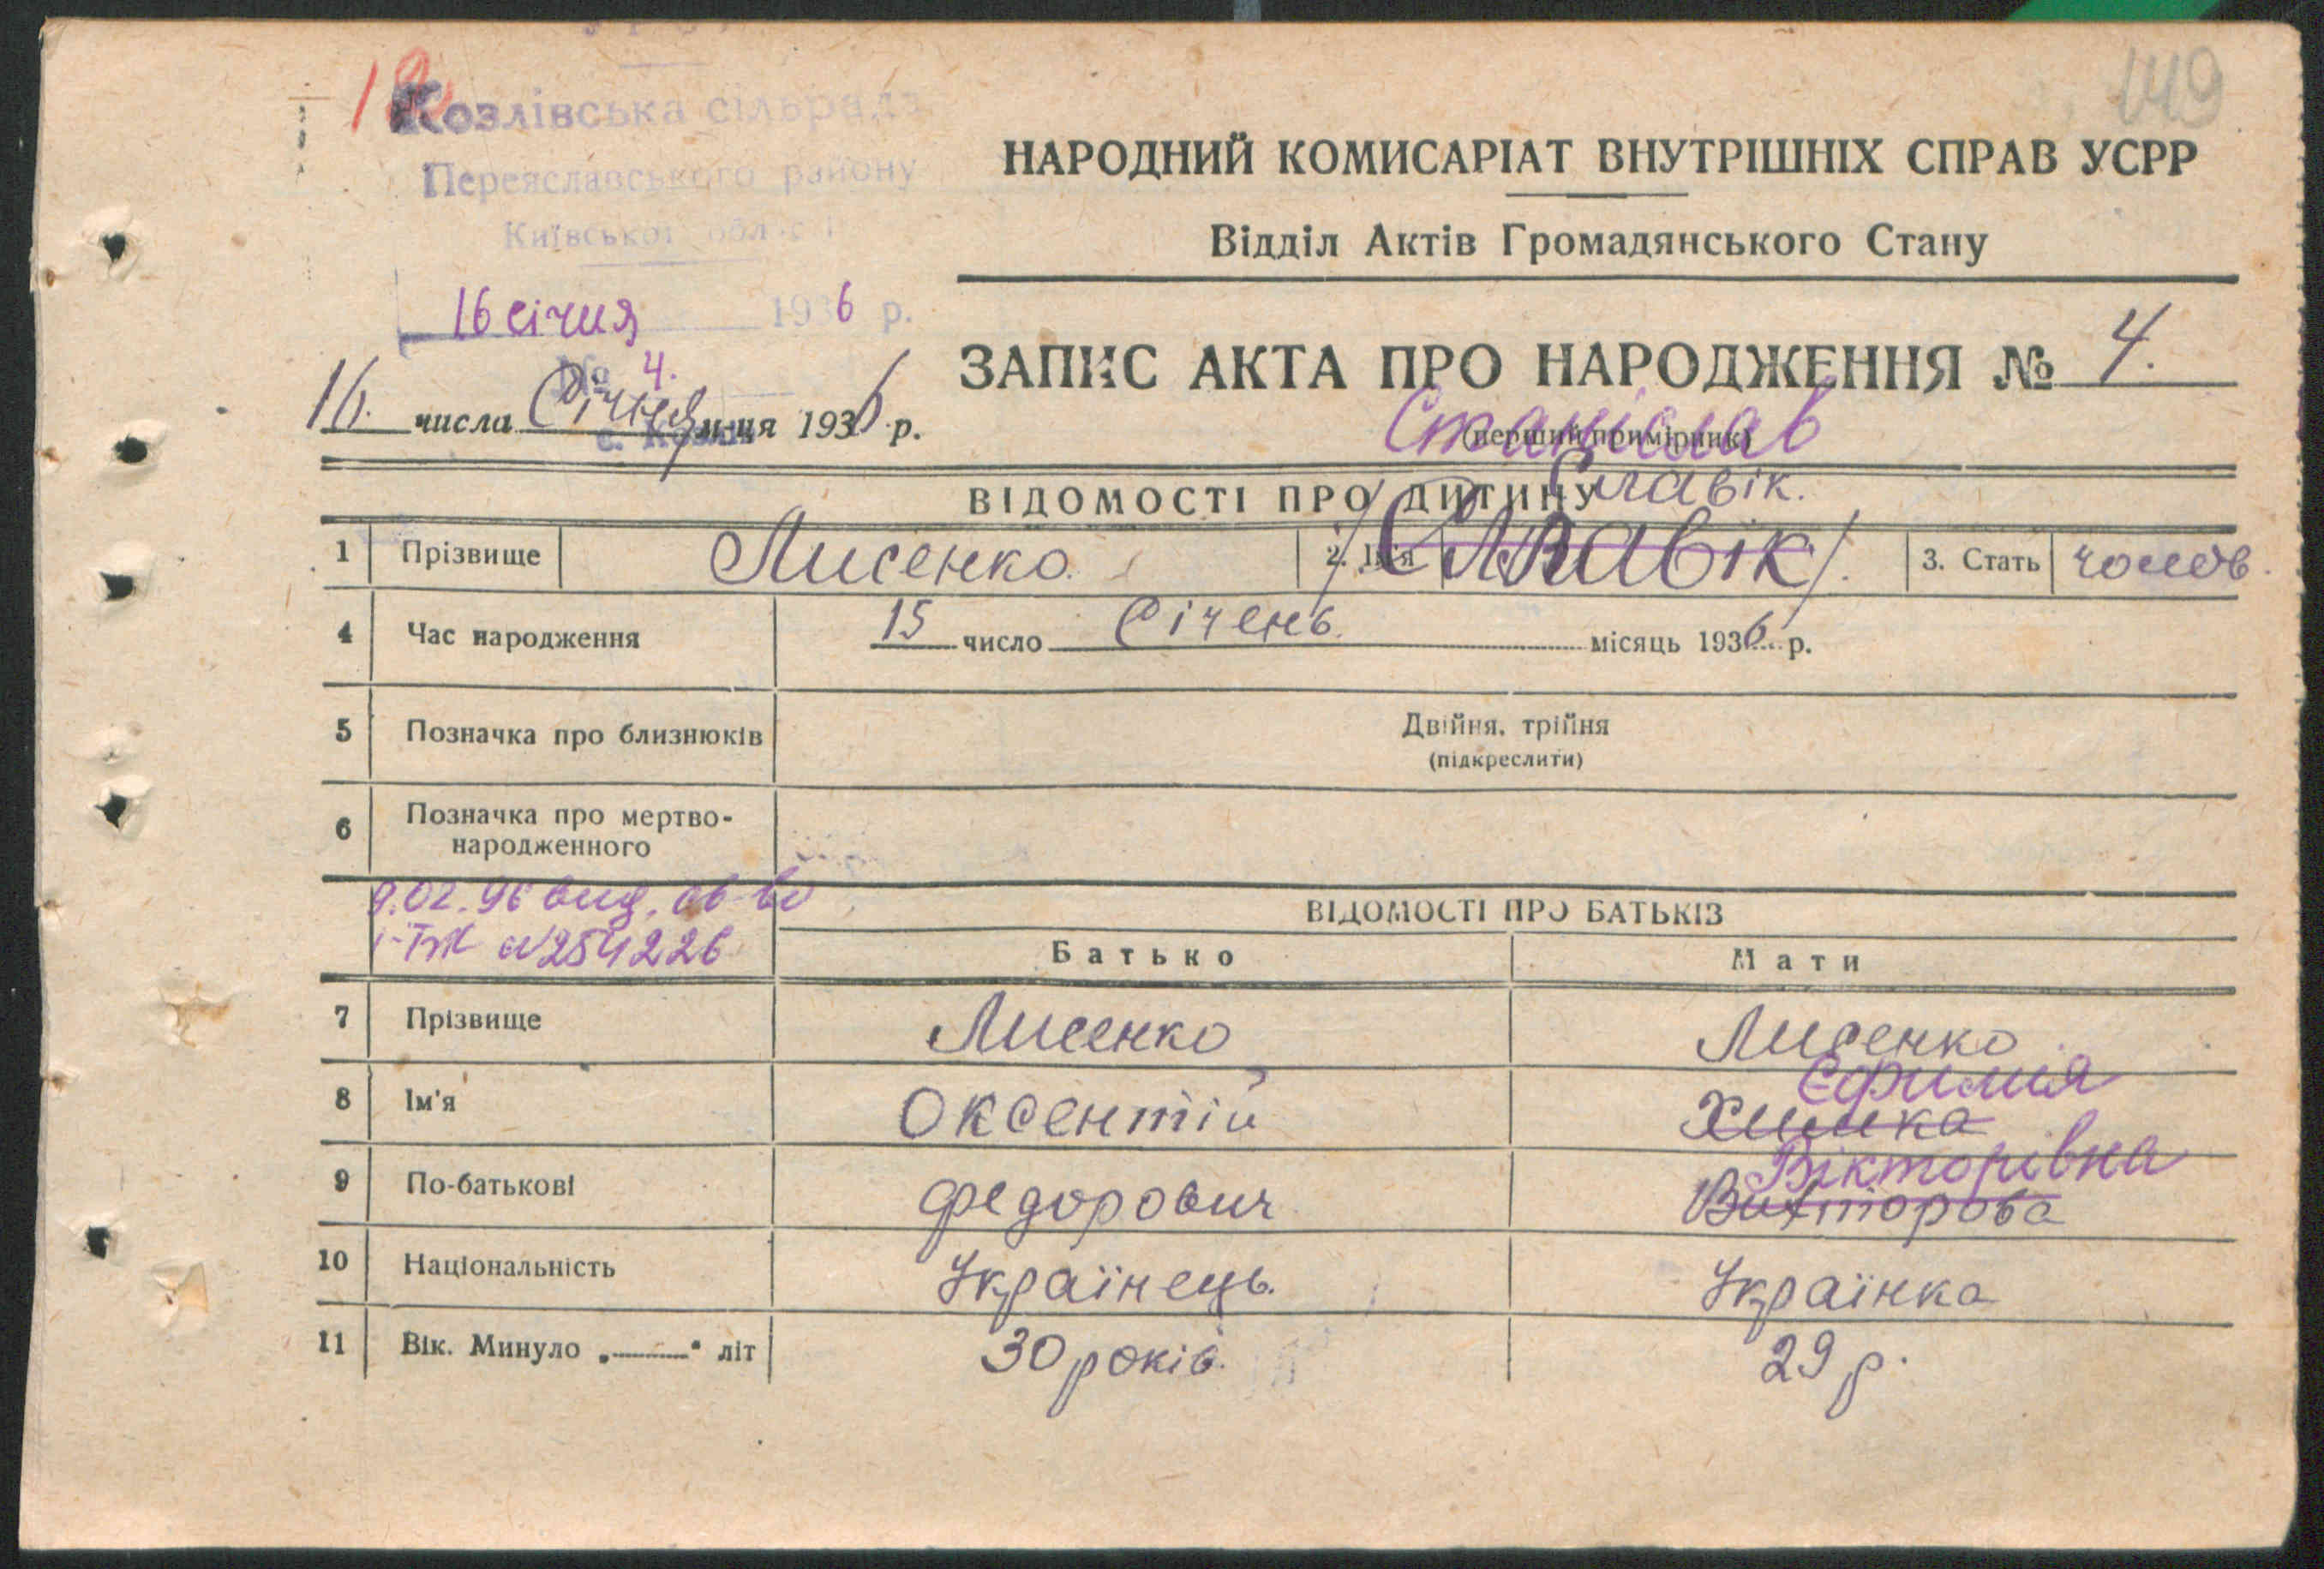 149
Козлівська сільрада
Переяславського району
Київської області
16 січня 1936 р.
№ 4.
с. Козлів
НАРОДНИЙ КОМИСАРІАТ ВНУТРІШНІХ СПРАВ УСРР
Відділ Актів Громадянського Стану
ЗАПИС АКТА ПРО НАРОДЖЕННЯ № 4.
16. числа Січня м-ця 1936 р.
(перший примірник)
Станіслав
Славік.
ВІДОМОСТІ ПРО ДИТИНУ
1 Прізвище Лисенко. 2. Ім'я /Славік/. 3. Стать чолов.
4 Час народження 15 число Січень місяць 1936 р.
5 Позначка про близнюків Двійня, трійня
(підкреслити)
6 Позначка про мертво-
народженного
9.02.96 вид. св-во
І-БК №254226
ВІДОМОСТІ ПРО БАТЬКІВ
Батько Мати
7 Прізвище Лисенко Лисенко
Єфимія
8 Ім'я Оксентій Химка
Вікторівна
9 По-батькові Федорович Вихторова
10 Національність Українець. Українка
11 Вік. Минуло „ " літ 30 років. 29 р.